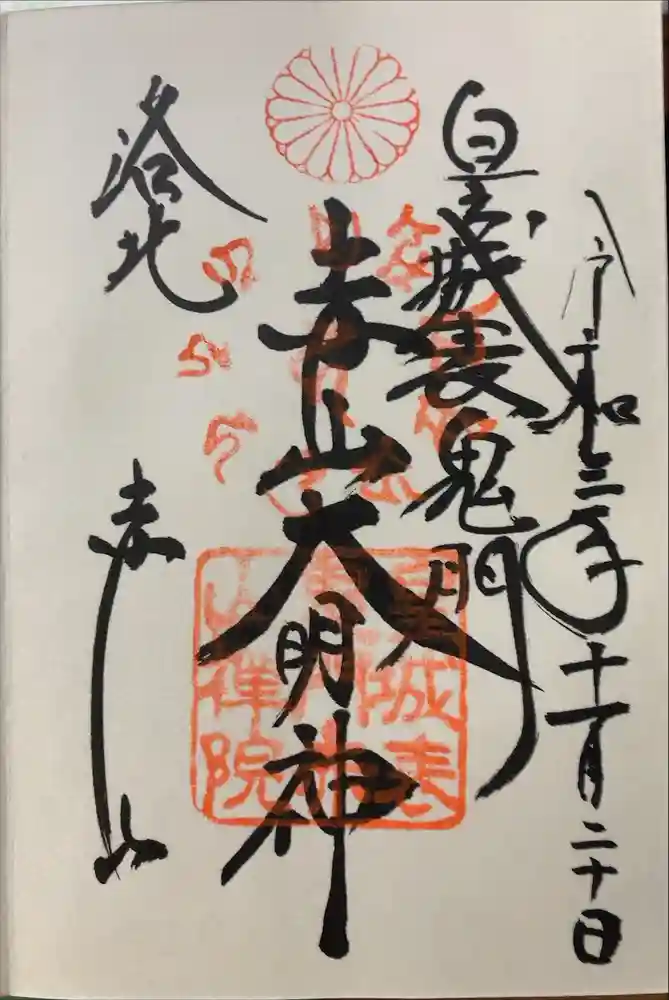 令和三年十一月二十日
皇城表鬼門
赤山大明神
洛北
赤山
皇城表
山禪院